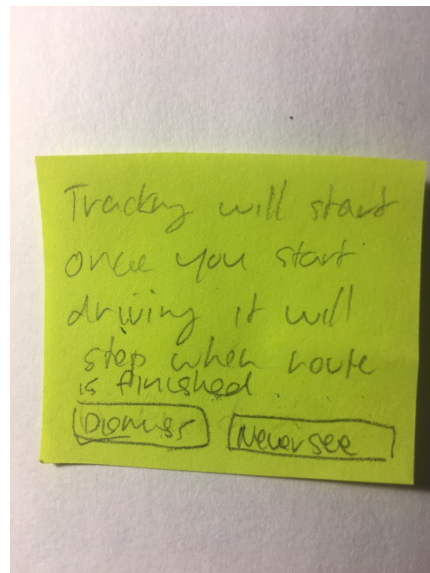 Tracking will start
once you start
driving it will
stop when route
is finished
Dismiss Never see